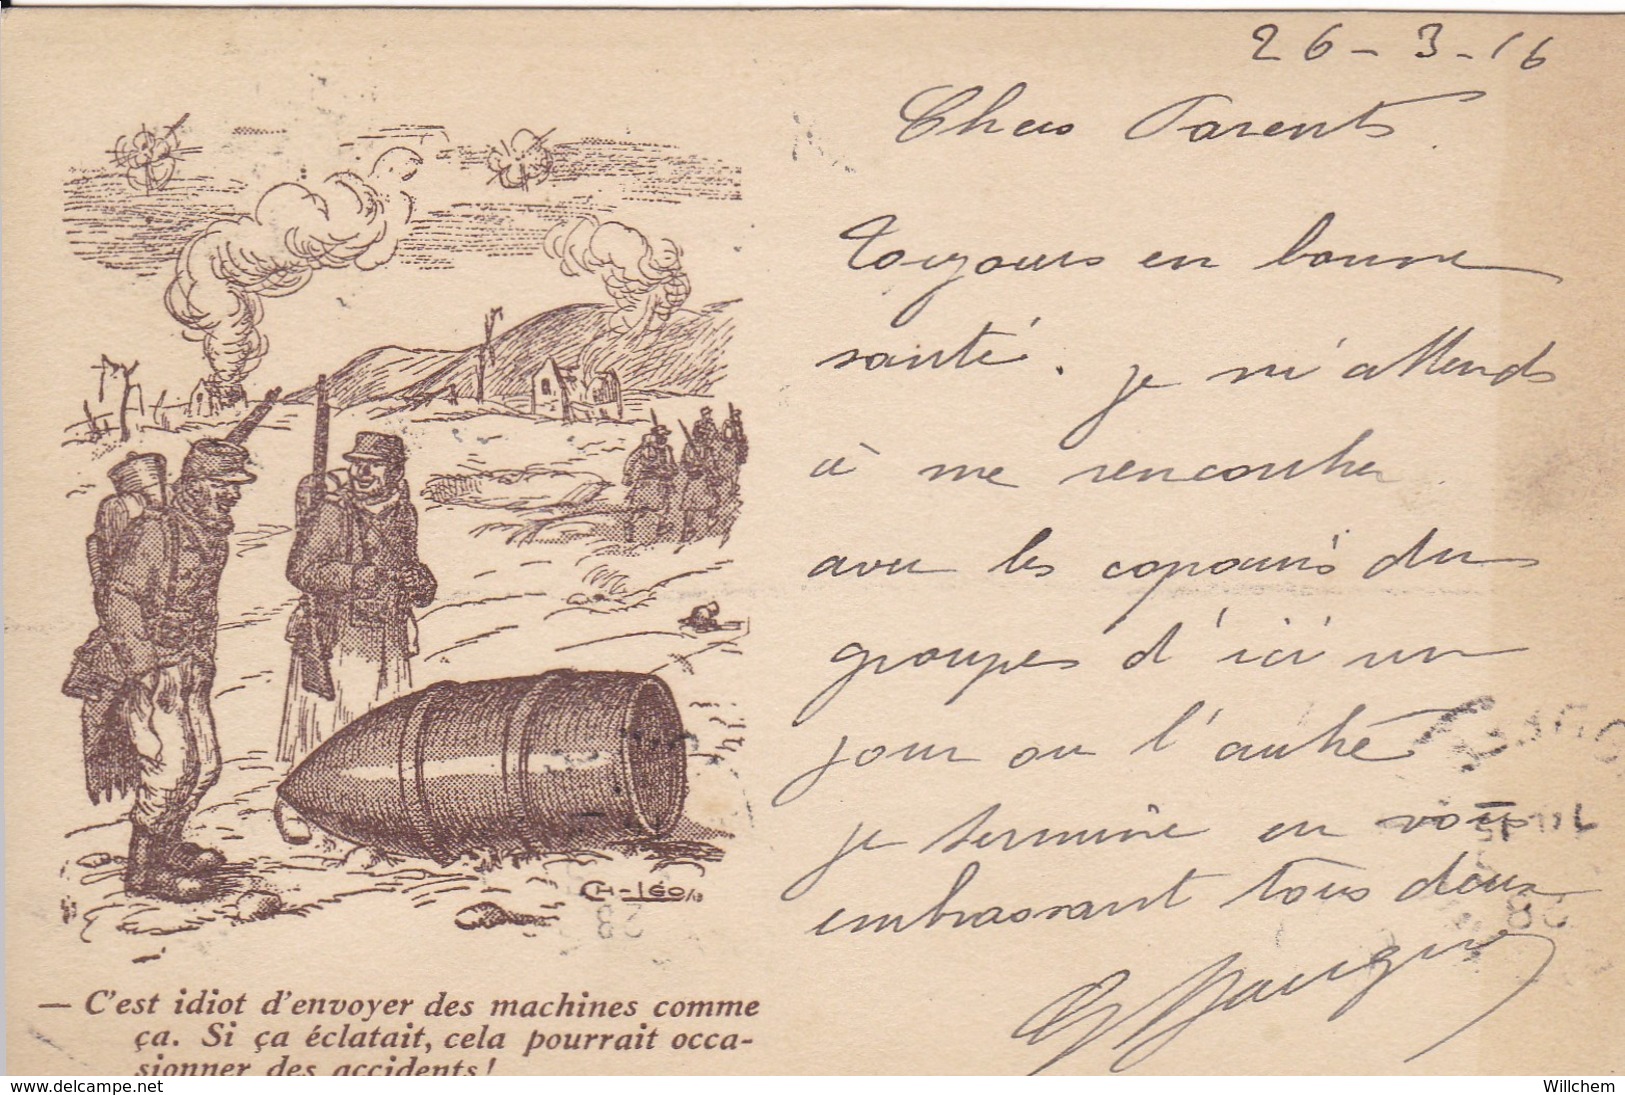 26-3-16
Chers Parents.
Toujours en bonne
santé. je m'attends
à me rencontrer
avec les copains du
groupes d'ici un
jour ou l'autre
je termine en vous
embrassant tous deux
CH-LÉO
— C'est idiot d'envoyer des machines comme
ça. Si ça éclatait, cela pourrait occa-
sionner des accidents!
28
28
www.delcampe.net
Willchem